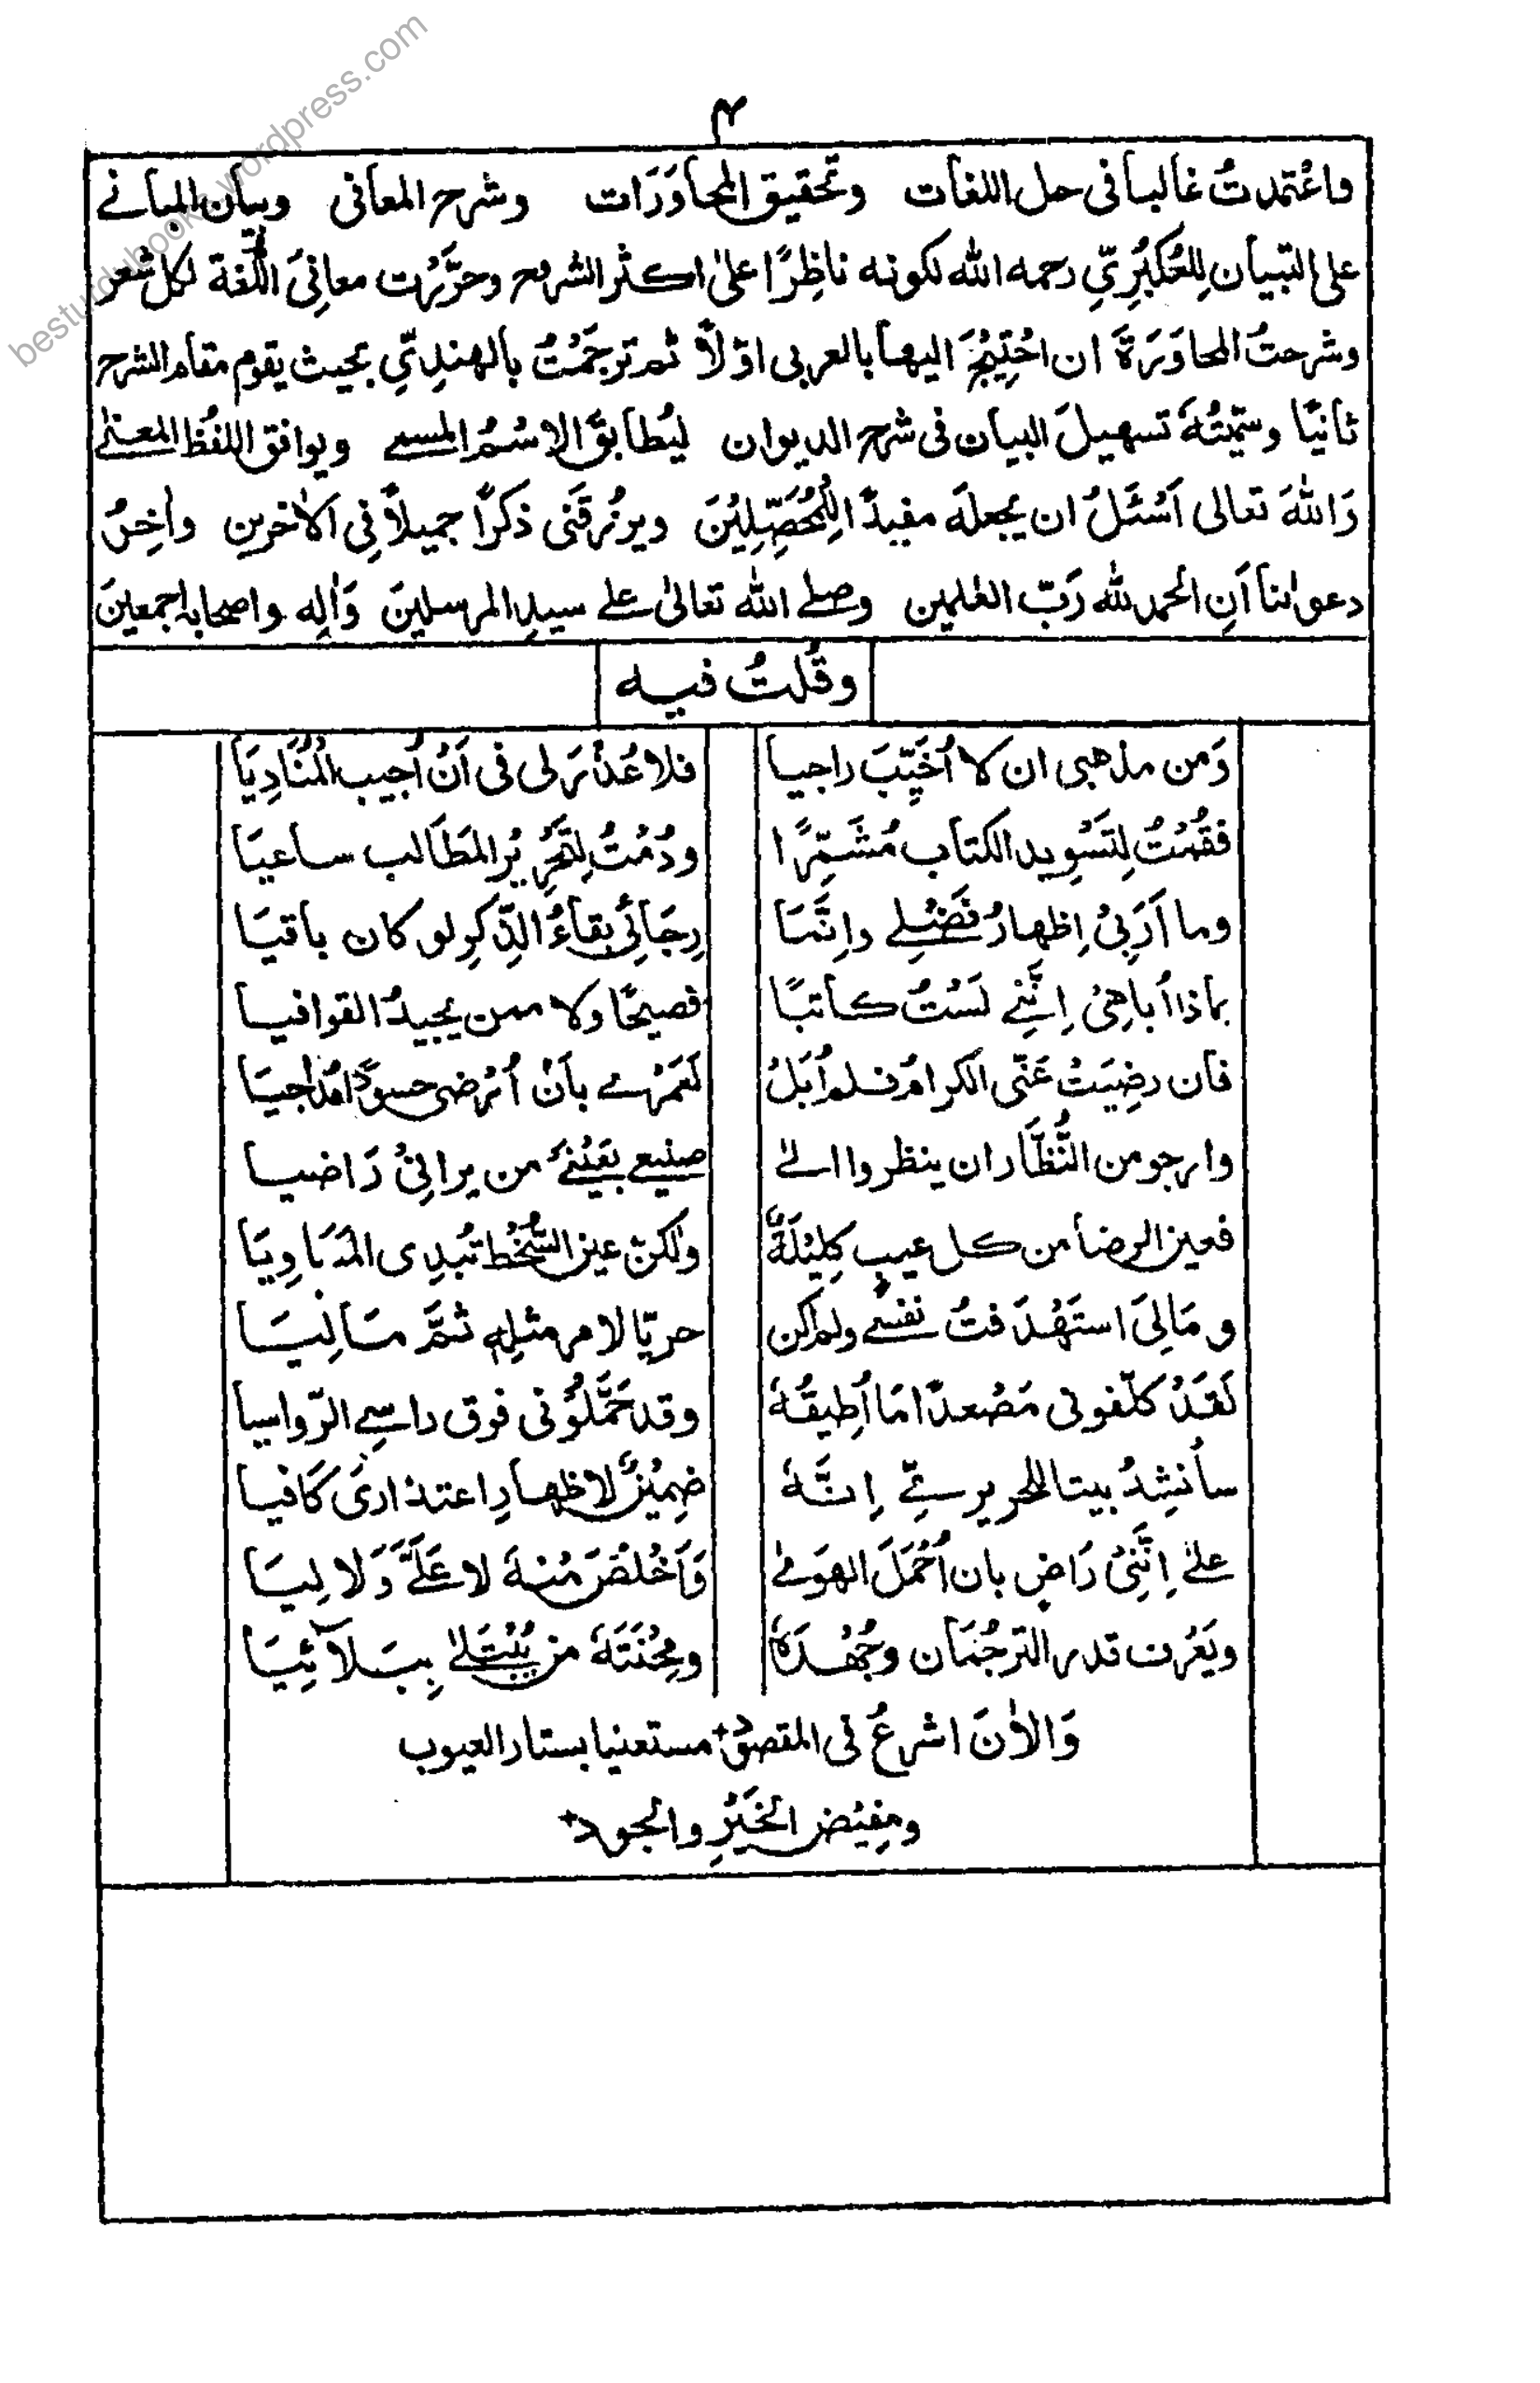 ۴
واعْتمدتُ غالبا فی حل اللغات وتحقيق المحاوَرَات وشرح المعانی وبيان المبانے
علی التبيان لِلعُكبَرِیِّ رحمه الله لكونه ناظِرًا علیٰ اكثر الشروح وحرَّرْت معانِیَ اللُّغة لكل شعر
وشرحتُ المحاوَرَةَ ان احْتِيْجَ اليها بالعربی اوّلًا ثم ترجَمْتُ بالهندِیِّ بحيث يقوم مقام الشرح
ثانيًا وسمّيتُهٗ تسهيلَ البيان فی شرح الديوان ليُطابقَ الاسْمُ المسمے ويوافق اللفُظ المعنےٰ
وَاللهَ تعالی اَسْئَلُ ان يجعلَه مفيدًا لِلْمُحَصِّلِيْنَ ويرزُقَنی ذكرًا جميلًا فِی الاٰخرين واٰخِرُ
دعوٰىنا اَنِ الحمد لله رَبّ العٰلمين وصلے الله تعالیٰ علے سيدِ المرسلينَ وَاٰلِه واصحابه اجمعينَ
وقُلتُ فيه
وَمن مذهبی ان لا اُخَيِّبَ راجيا فلا عُذْرَ لی فی اَنْ اُجيب الْمُنَادِيَا
فقُمْتُ لِتَسْوِيد الكتاب مُشَمِّرًا ودُمْتُ لِتَحْرِيْرِ المَطَالب ساعيَا
وما اَرَبِیْ اِظهارُ فَضْلے وانَّمَا رِجَائِیْ بقاءُ الذِّكرِ لو كان باقيَا
بماذا اُباهِیْ اِنَّنِے لَسْتُ كاتبًا فصيحًا ولا ممن يجيدُ القوافيا
فان رضِيَتْ عَنّی الكرامُ فلم اُبَلْ لَعَمْرے بأَنْ اُرْضی حسودًا مُداجيَا
وارجو من النُّظَّار ان ينظروا الےٰ صنيعے بعَيْنَےْ من يرانِیْ رَاضيا
فعين الرضا من كل عيبٍ كلِيْلَةٌ ولٰكنّ عين السُّخْط تُبدِی المَسَاوِيَا
ومَالِیَ استَهْدَفتُ نفسے ولم اكن حريّا لامرٍ مثلِهٖ ثمَّ مَا لِيَا
لَقَدْ كلّفونی مَصْعدًا مَا اُطيقُهٗ وقد حَمَّلُوْنی فوق راسِے الرّواسيا
سأنشِدُ بيتا للحريرے اِنَّهٗ ضمِيْنٌ لاظهارِ اعتذاریْ كَافيا
علےٰ اِنَّنِیْ رَاضٍ بان اَحْمِلَ الهَوےٰ وَاَخْلُصَ مِنْهُ لا عَلَیَّ وَلا لِيَا
ويَعْرِف قدر الترجُمَان وجُهْدَهٗ ومِحْنَتَهٗ من يُبْتَلےٰ بِبَلَآئِيَا
وَالاٰنَ اشرعُ فی المقصود مستعنيا بستار العيوب
ومفيْضِ الخَيْرِ والجود
besturdubooks.wordpress.com